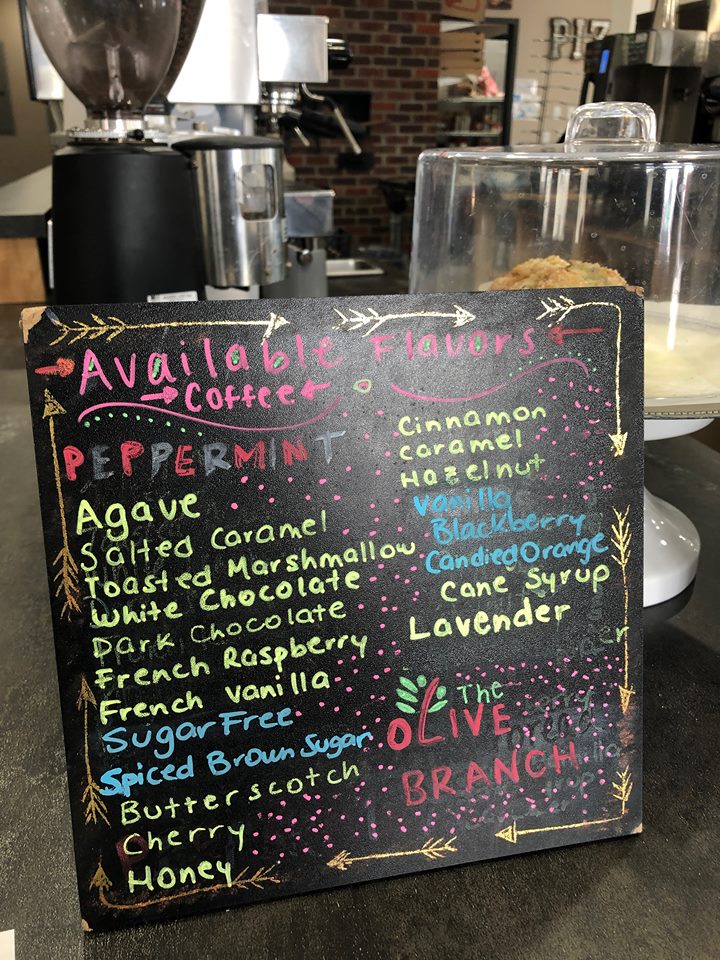 PIZ
Available Flavors
Coffee
PEPPERMINT
Agave
Salted Caramel
Toasted Marshmallow
White Chocolate
Dark Chocolate
French Raspberry
French Vanilla
Sugar Free
Spiced Brown Sugar
Butterscotch
Cherry
Honey
Cinnamon
Caramel
Hazelnut
Vanilla
Blackberry
Candied Orange
Cane Syrup
Lavender
The
OLIVE
BRANCH